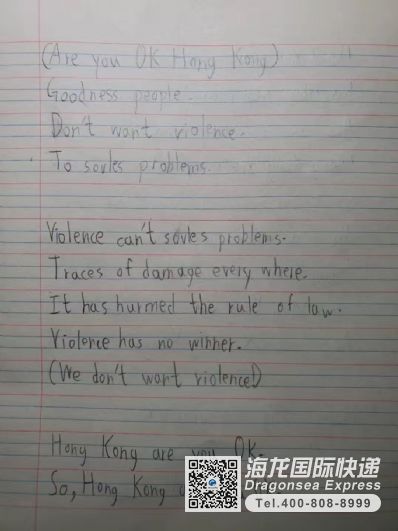 (Are you OK Hong Kong)
Goodness people.
Don't want violence.
To sovles problems.
Violence can't sovles problems.
Traces of damage every where.
It has hurmed the rule of law.
Violence has no winner.
(We don't want violence!)
Hong Kong are you OK.
So, Hong Kong
海龙国际快递
Dragonsea Express
Tel.400-808-8999